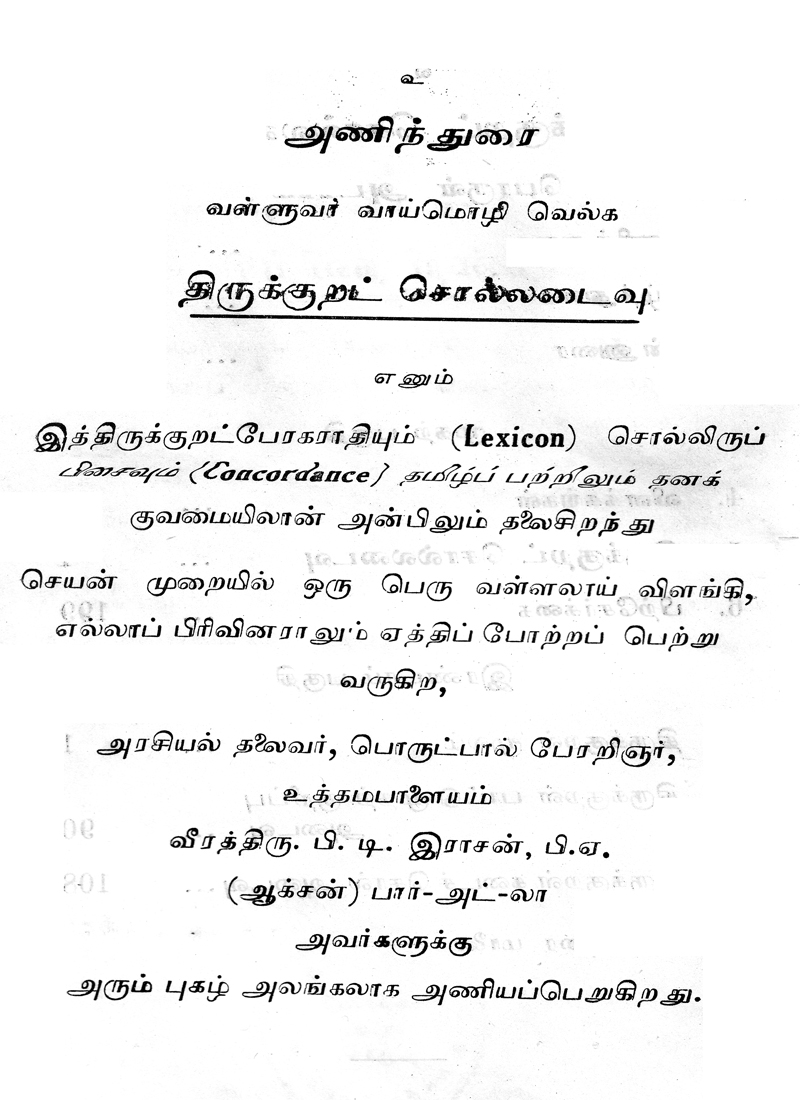 உ
அணிந்துரை
வள்ளுவர் வாய்மொழி வெல்க
திருக்குறட் சொல்லடைவு
எனும்
இத்திருக்குறட்பேரகராதியும் (Lexicon) சொல்லிருப்
பிசைவும் (Concordance) தமிழ்ப் பற்றிலும் தனக்
குவமையிலான் அன்பிலும் தலைசிறந்து
செயன் முறையில் ஒரு பெரு வள்ளலாய் விளங்கி,
எல்லாப் பிரிவினராலும் ஏத்திப் போற்றப் பெற்று
வருகிற,
அரசியல் தலைவர், பொருட்பால் பேரறிஞர்,
உத்தமபாளையம்
வீரத்திரு. பி. டி. இராசன், பி.ஏ.
(ஆக்சன்) பார்-அட்-லா
அவர்களுக்கு
அரும் புகழ் அலங்கலாக அணியப்பெறுகிறது.